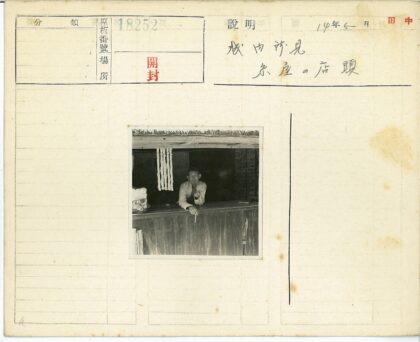 分類
原板番號
18252
場所
開封
説明
14年5月
田中
城内所見
糸屋の店頭